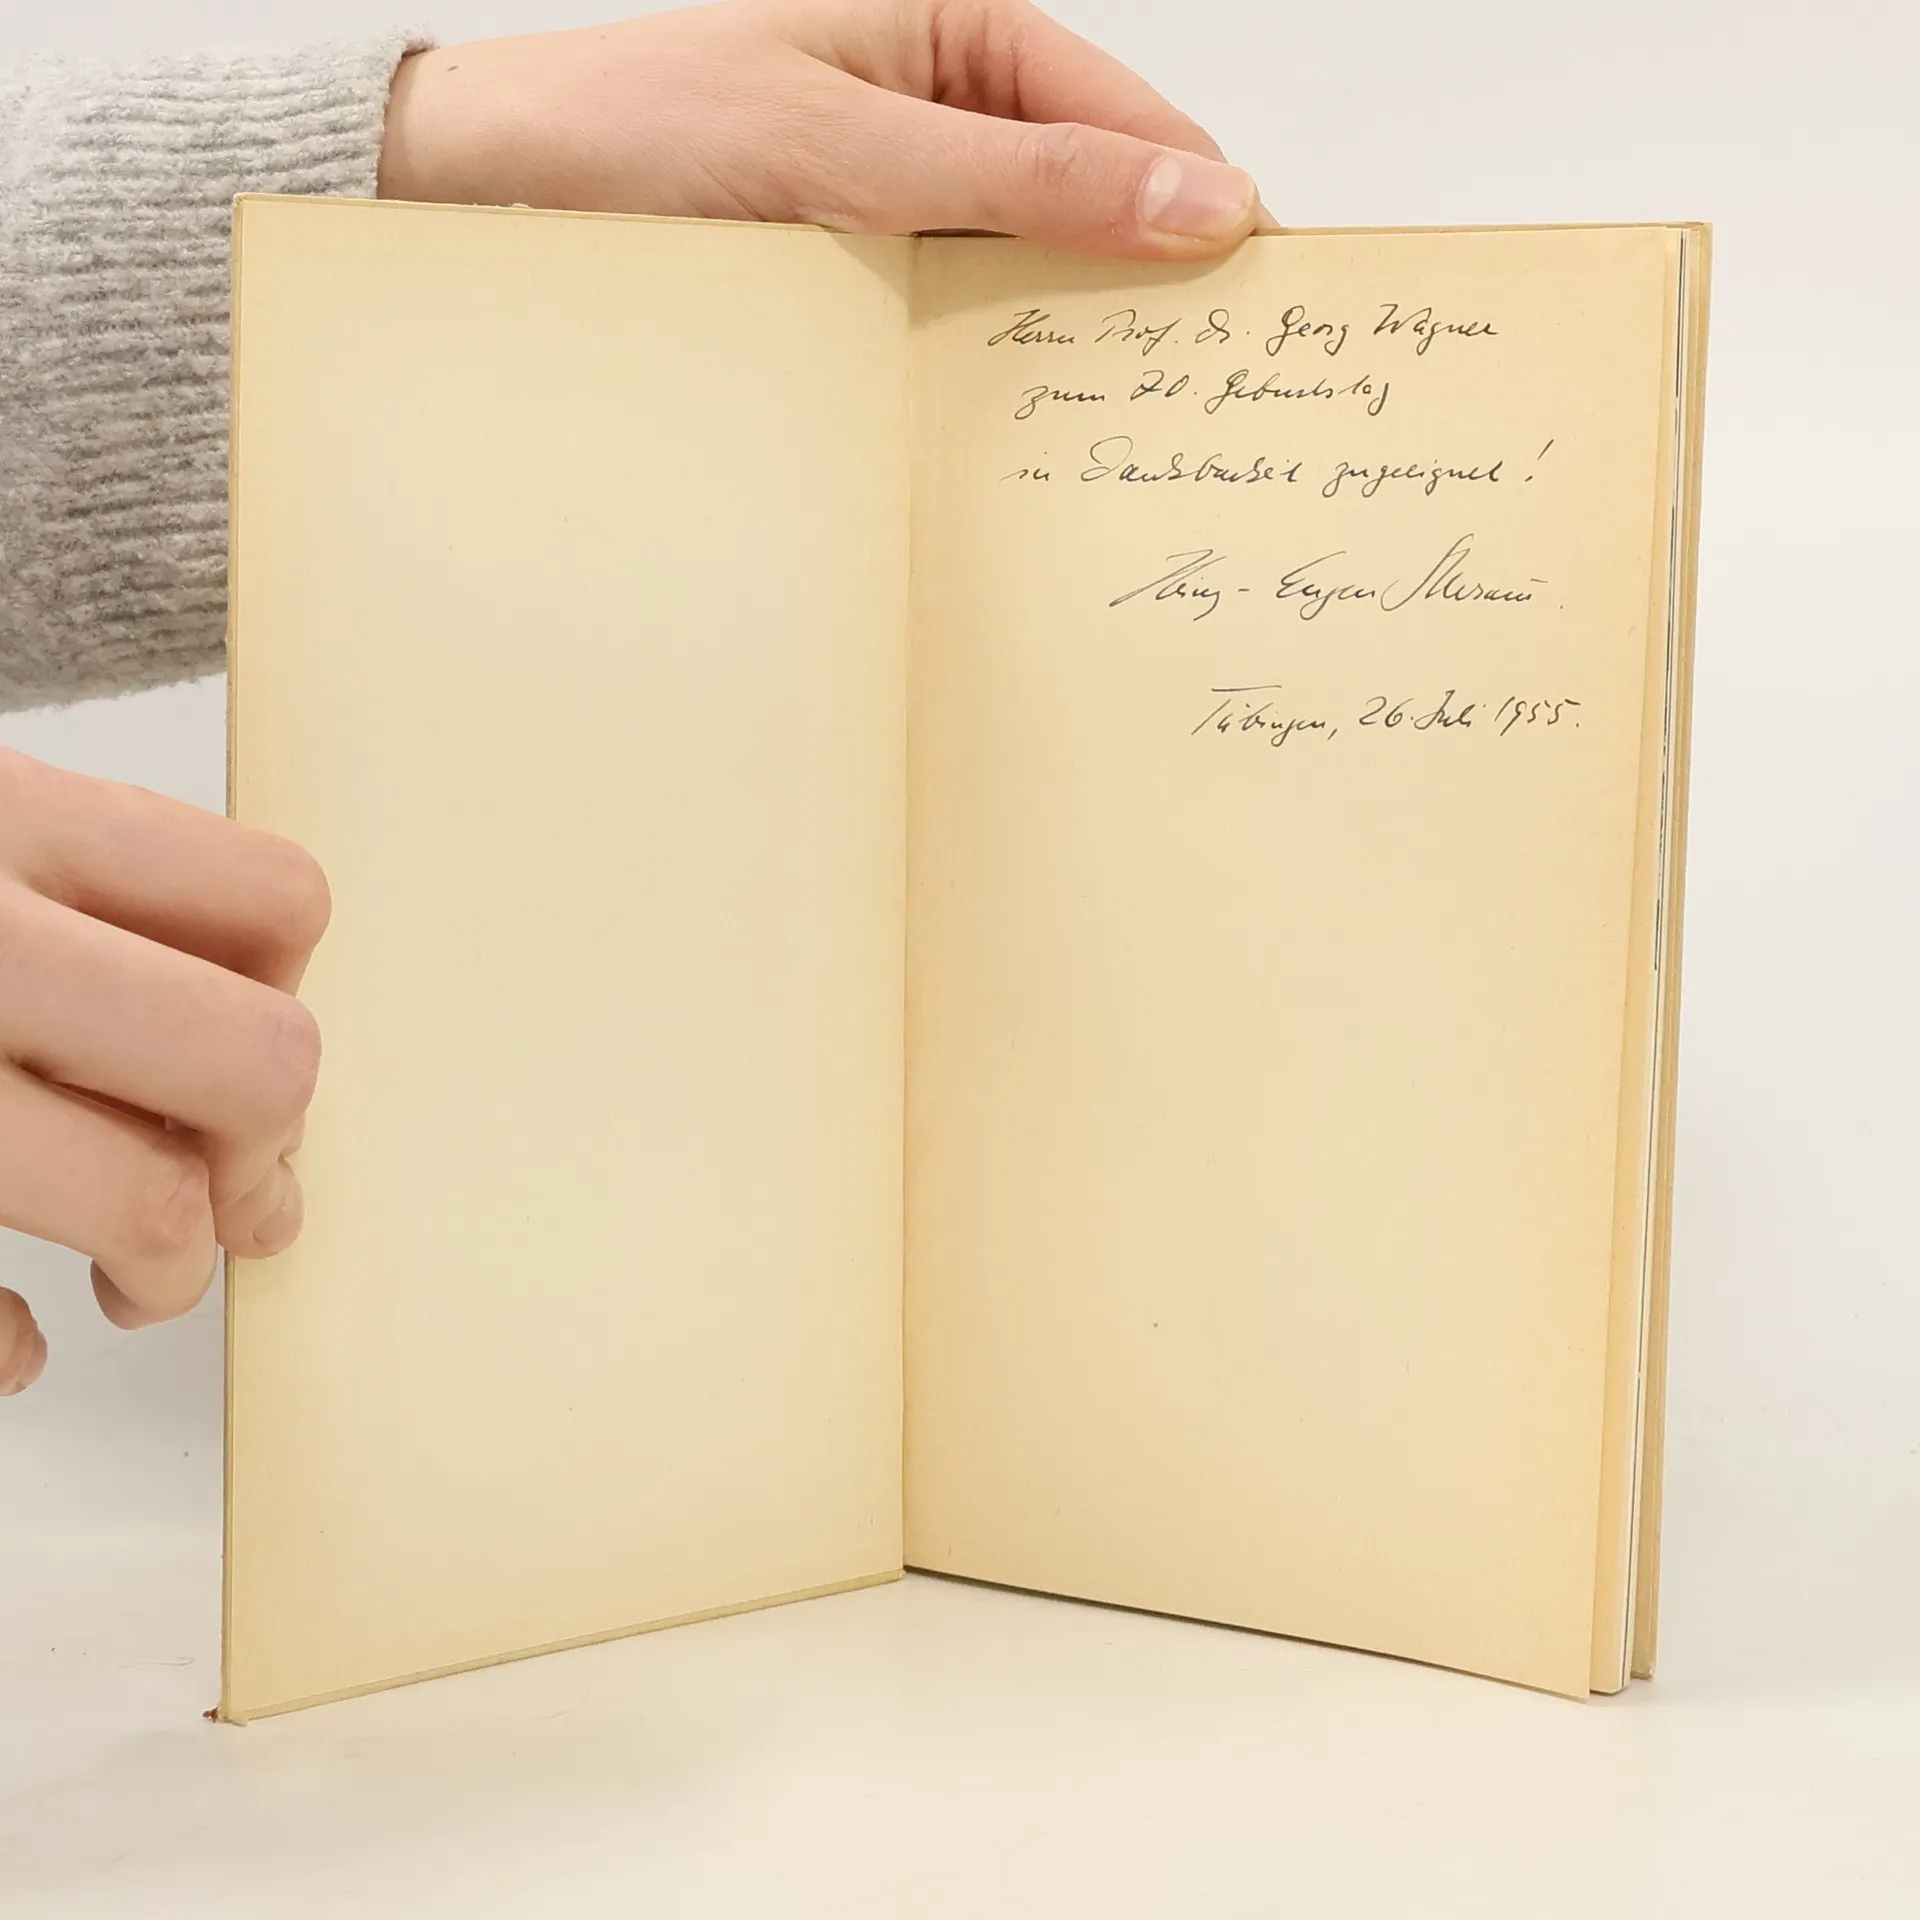 Herrn Prof. Dr. Georg Wagner
zum 70. Geburtstag
in Dankbarkeit zugeeignet!
Heinz-Eugen
Tübingen, 26. Juli 1955.